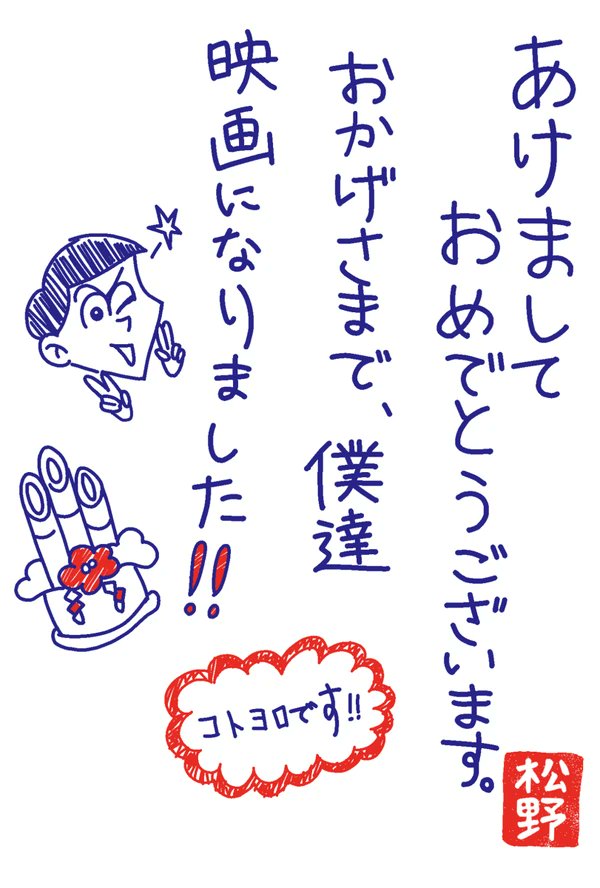 あけまして
おめでとうございます。
おかげさまで、僕達
映画になりました!!
コトヨロです!!
松野